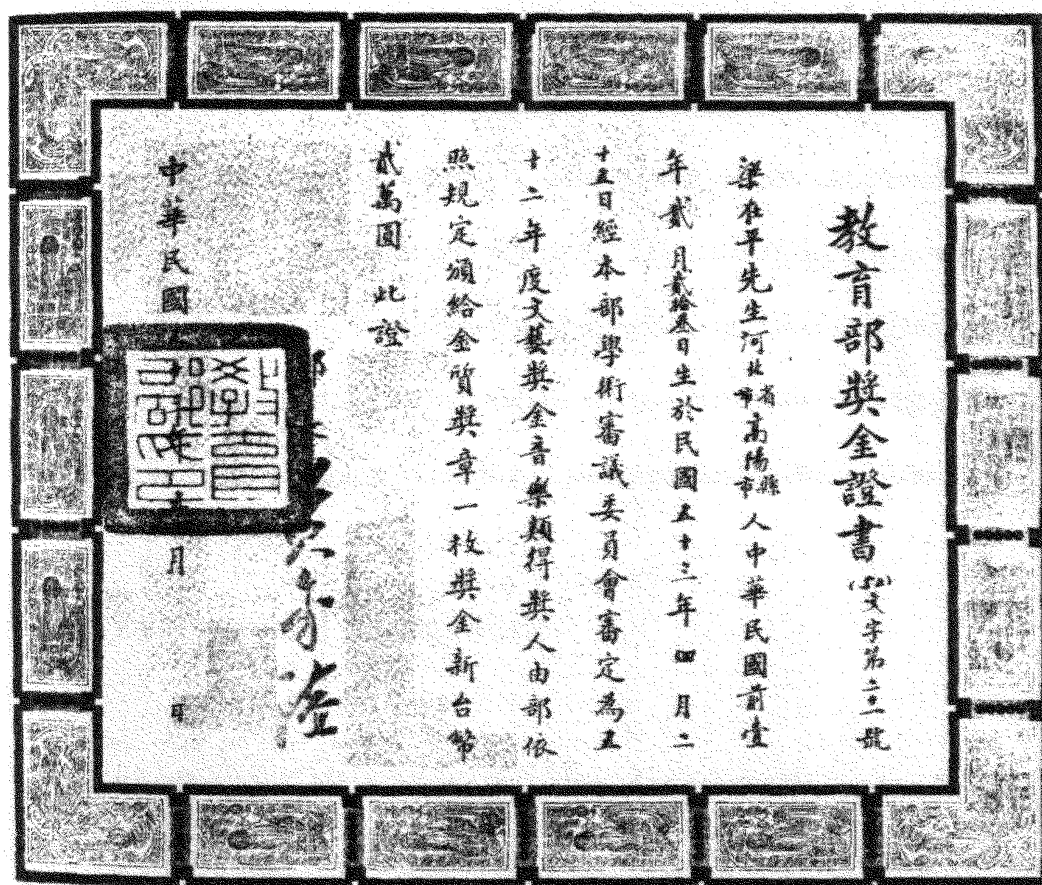 教育部獎金證書(52)文字第二十二號
梁在平先生河北省市高陽縣市人中華民國前壹
年貳月貳拾叁日生於民國五十三年四月二
十五日經本部學術審議委員會審定為五
十二年度文藝獎金音樂類得獎人由部依
照規定頒給金質獎章一枚獎金新台幣
貳萬圓 此證
部長
中華民國 月 日